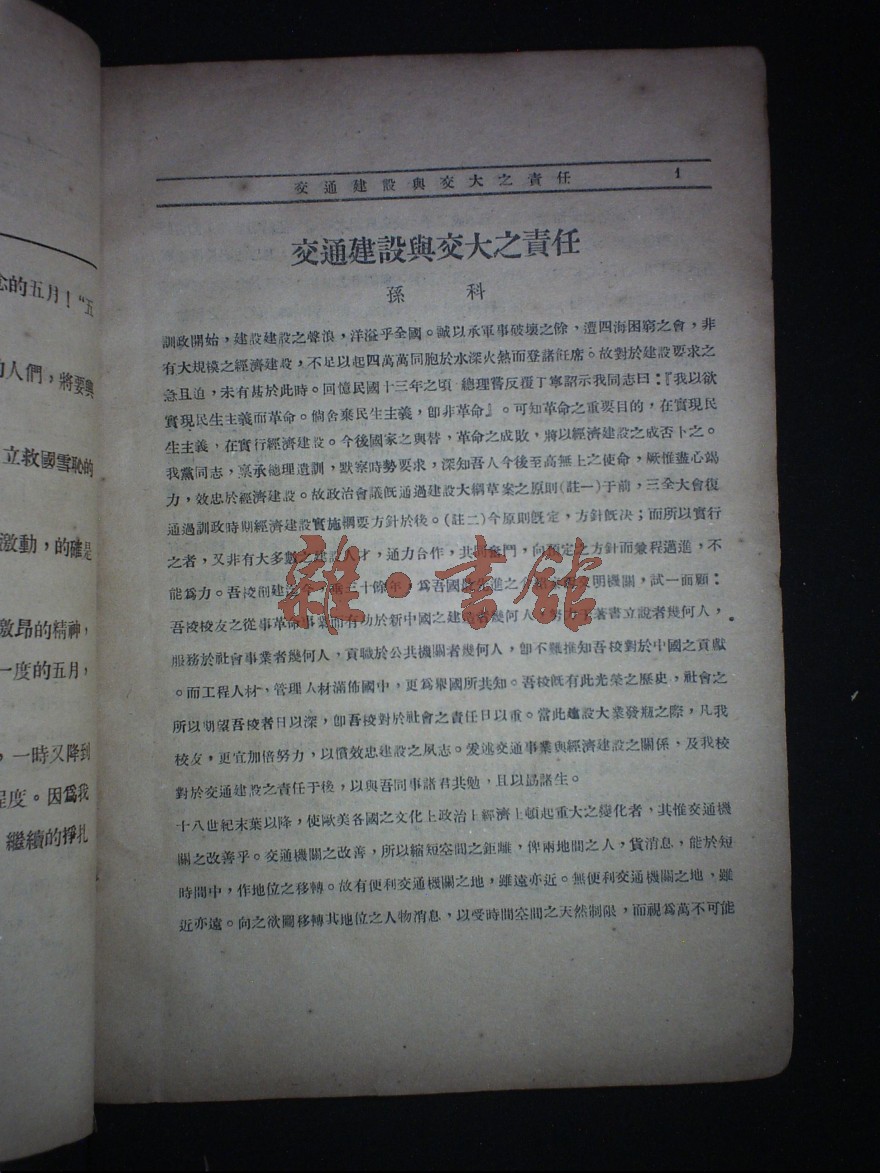 念的五月！“五
的人們，將要與
立救國雪恥的
激動，的確是
激昂的精神，
一度的五月，
，一時又降到
程度。因爲我
繼續的掙扎
交通建設與交大之責任 1
交通建設與交大之責任
孫 科
訓政開始，建設建設之聲浪，洋溢乎全國。誠以承軍事破壞之餘，遭四海困窮之會，非
有大規模之經濟建設，不足以起四萬萬同胞於水深火熱而登諸袵席。故對於建設要求之
急且迫，未有甚於此時。回憶民國十三年之頃 總理嘗反覆丁寧詔示我同志曰：『我以欲
實現民生主義而革命。倘舍棄民生主義，卽非革命』。可知革命之重要目的，在實現民
生主義，在實行經濟建設。今後國家之興替，革命之成敗，將以經濟建設之成否卜之。
我黨同志，稟承總理遺訓，默察時勢要求，深知吾人今後至高無上之使命，厥惟盡心竭
力，效忠於經濟建設。故政治會議旣通過建設大綱草案之原則(註一)于前，三全大會復
通過訓政時期經濟建設實施綱要方針於後。(註二)今原則旣定，方針旣決；而所以實行
之者，又非有大多數之建設人才，通力合作，共同奮鬥，向預定之方針而兼程邁進，不
能爲力。吾校創建迄今，垂三十餘年，爲吾國最先進之介紹永久文明機關，試一面顧：
吾校校友之從事革命事業而有功於新中國之建造者幾何人，努力于著書立說者幾何人，
服務於社會事業者幾何人，貢職於公共機關者幾何人，卽不難推知吾校對於中國之貢獻
。而工程人材、管理人材滿佈國中，更爲舉國所共知。吾校旣有此光榮之歷史，社會之
所以期望吾校者日以深，卽吾校對於社會之責任日以重。當此建設大業發軔之際，凡我
校友，更宜加倍努力，以償效忠建設之夙志。爰述交通事業與經濟建設之關係，及我校
對於交通建設之責任于後，以與吾同事諸君共勉，且以勗諸生。
十八世紀末葉以降，使歐美各國之文化上政治上經濟上頓起重大之變化者，其惟交通機
關之改善乎。交通機關之改善，所以縮短空間之鉅離，俾兩地間之人，貨消息，能於短
時間中，作地位之移轉。故有便利交通機關之地，雖遠亦近。無便利交通機關之地，雖
近亦遠。向之欲圖移轉其地位之人物消息，以受時間空間之天然制限，而視爲萬不可能
雜·書館